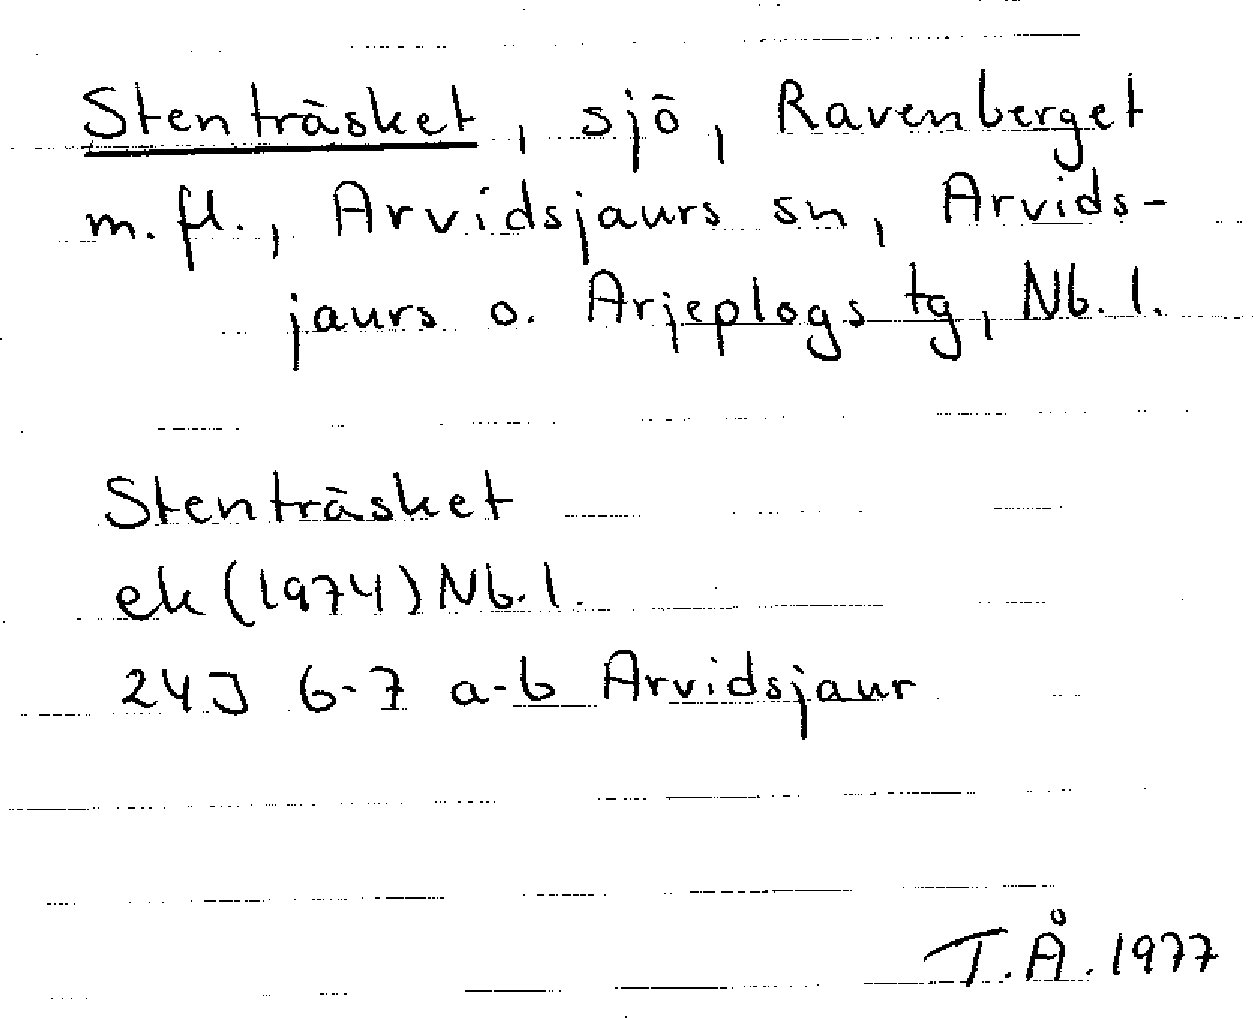 Stenträsket, sjö, Ravenberget
m. fl., Arvidsjaurs sn, Arvids-
jaurs o. Arjeplogs tg, Nb. l.
Stenträsket
ek (1974) Nb. l.
24J 6-7 a-b Arvidsjaur
T.Å. 1977